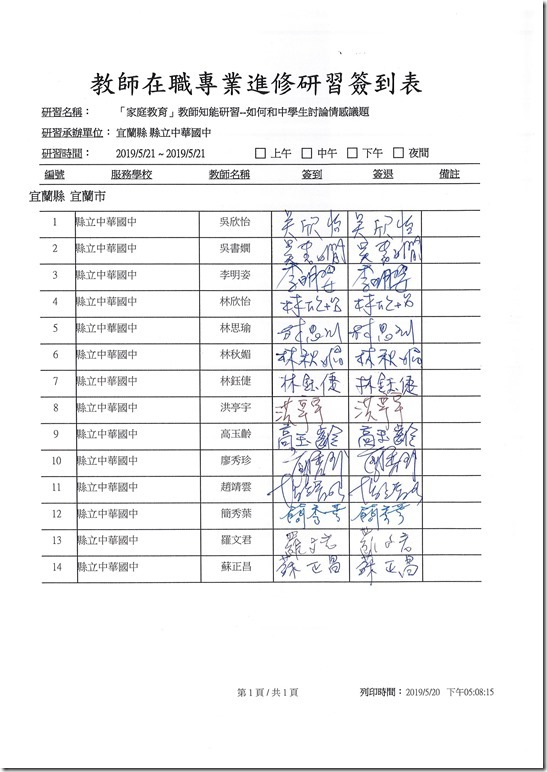 教師在職專業進修研習簽到表
研習名稱： 「家庭教育」教師知能研習--如何和中學生討論情感議題
研習承辦單位： 宜蘭縣 縣立中華國中
研習時間： 2019/5/21 ~ 2019/5/21 □ 上午 □ 中午 □ 下午 □ 夜間
編號 服務學校 教師名稱 簽到 簽退 備註
宜蘭縣 宜蘭市
1 縣立中華國中 吳欣怡 吳欣怡 吳欣怡
2 縣立中華國中 吳書嫻 吳書嫻 吳書嫻
3 縣立中華國中 李明姿 李明姿 李明姿
4 縣立中華國中 林欣怡 林欣怡 林欣怡
5 縣立中華國中 林思瑜 林思瑜 林思瑜
6 縣立中華國中 林秋媚 林秋媚 林秋媚
7 縣立中華國中 林鈺倢 林鈺倢 林鈺倢
8 縣立中華國中 洪亭宇 洪亭宇 洪亭宇
9 縣立中華國中 高玉齡 高玉齡 高玉齡
10 縣立中華國中 廖秀珍
11 縣立中華國中 趙靖雲
12 縣立中華國中 簡秀葉 簡秀葉 簡秀葉
13 縣立中華國中 羅文君 羅文君 羅文君
14 縣立中華國中 蘇正昌 蘇正昌 蘇正昌
第 1 頁 / 共 1 頁 列印時間： 2019/5/20 下午05:08:15